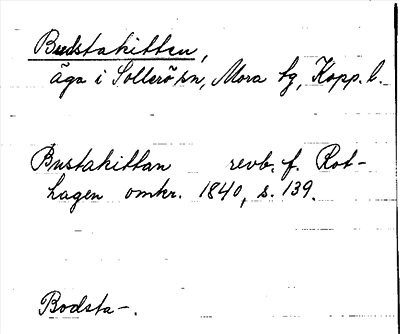 Budstakittan,
äga i Sollerö sn, Mora tg, Kopp. l.
Bustakittan revb. f. Rot-
hagen omkr. 1840, s. 139.
Bodsta-.